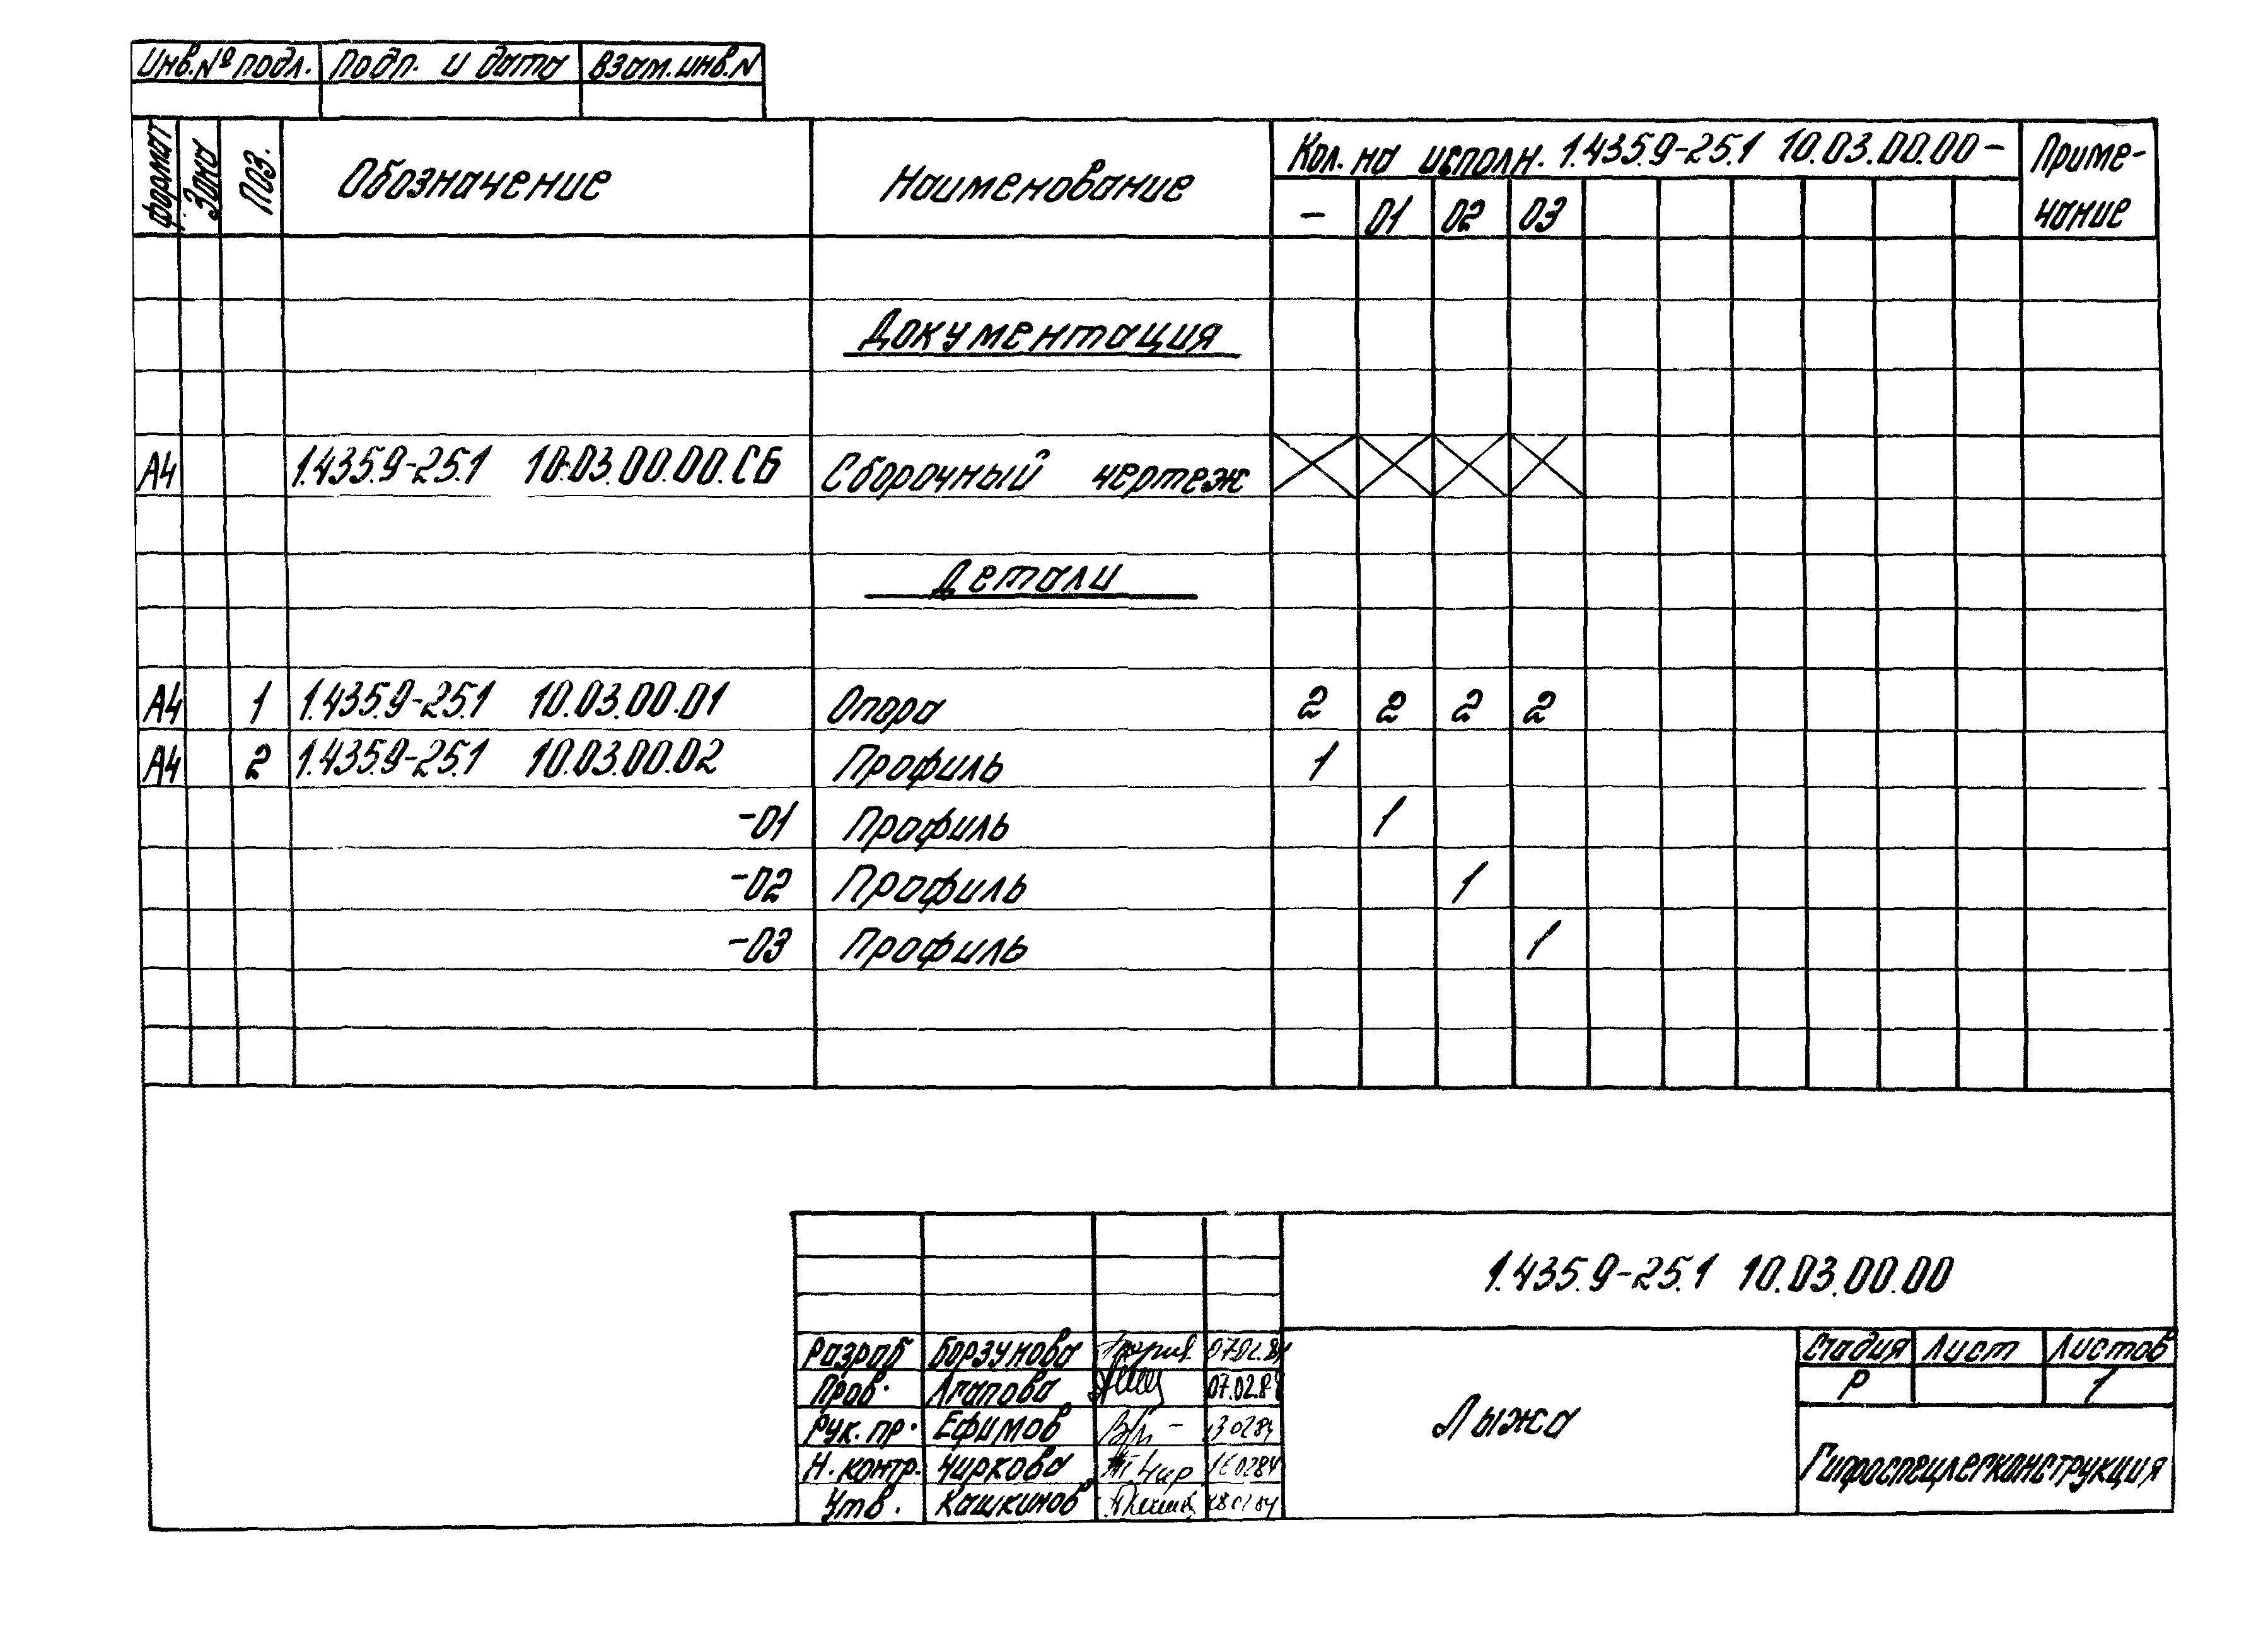 Инв.№ подл. Подп. и дата Взам. инв. N
Формат Зона Поз. Обозначение Наименование Кол. на исполн. 1.435.9-25.1 10.03.00.00- Приме-
- 01 02 03 чание
Документация
А4 1.435.9-25.1 10.03.00.00.СБ Сборочный чертеж
Детали
А4 1 1.435.9-25.1 10.03.00.01 Опора 2 2 2 2
А4 2 1.435.9-25.1 10.03.00.02 Профиль 1
-01 Профиль 1
-02 Профиль 1
-03 Профиль 1
1.435.9-25.1 10.03.00.00
Разраб Борзунова 07.02.84
Пров. Агапова 07.02.84
Рук. пр. Ефимов 13 02 84
Н. контр. Чиркова 16 02 84
Утв. Кашкинов
Лыжа
Стадия Лист Листов
Р 1
Гипроспецлегконструкция